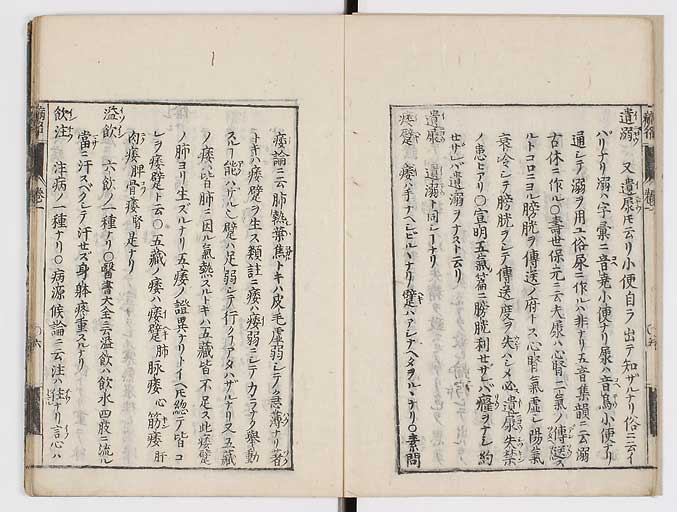 遺溺 又遺尿モ云リ小便自ラ出テ知ザルナリ俗ニ云イ
バリナリ溺ハ字彙ニ音尿小便ナリ尿ハ音鳥小便ナリ
通シテ溺ヲ用ユ俗尿ニ作ルハ非ナリ五音集韻ニ云溺
古休ニ作ル〇壽世保元ニ云夫尿ハ心腎二氣ノ傳送ス
ルトコロニヨル膀胱ヲ傳送ノ府トス心腎氣虚シ陽氣
衰冷シテ膀胱ヲシテ傳送度ヲ失ハシメ必遺尿失禁
ノ患ヒアリ〇宣明五氣篇ニ膀胱利セザレバ癃ヲナシ約
セザレバ遺溺ヲナスト云リ
遺尿 遺溺ト同シナリ
痿躄 痿ハ手ナヘシビルヽナリ躄ハアシナヘタヲルヽナリ〇素問
痿論ニ云肺熱葉焦トキハ皮毛虚弱シテ急薄ナリ著
トキハ痿躄ヲ生ス類註ニ痿ハ痿弱ニシテカラナク舉動
スル能ハザルナリ躄ハ足弱シテ行クフアタハザルナリ又五藏
ノ痿ハ皆肺ニ因ル氣熱スルトキハ五藏皆不足ス此痿躄
ノ肺ヨリ生ズルナリ五痿ノ證異ナリトイヘ𪜈總テ皆コ
レヲ痿躄ト云〇五藏ノ痿ハ痿躄肺脉痿心筋痿肝
肉痿脾骨痿腎是ナリ
溢飲 六飲ノ一種ナリ〇醫書大全ニ云溢飲ハ飲水四肢ニ流ル
當ニ汗スベクシテ汗セズ身躰疼重スルナリ
飲注 注病ノ一種ナリ〇病源候論ニ云注ハ住ナリ言心ハ